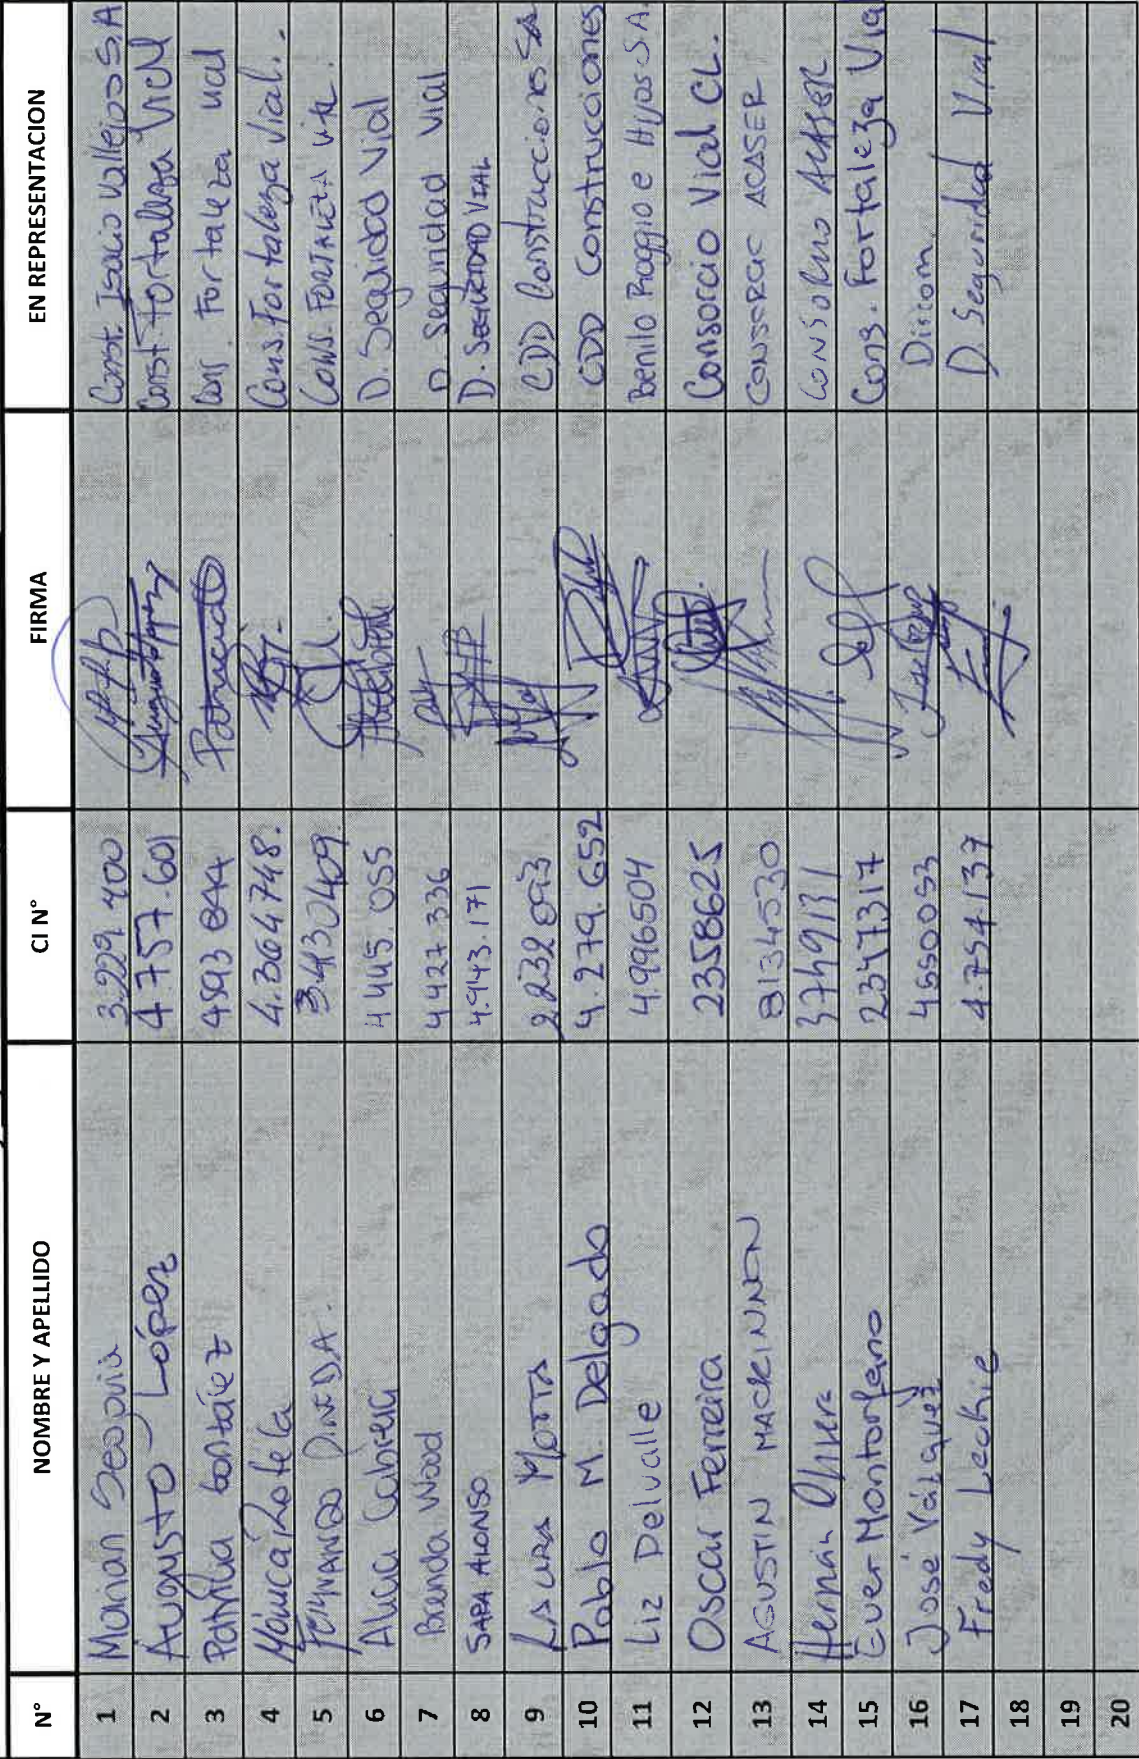 N° NOMBRE Y APELLIDO CI N° FIRMA EN REPRESENTACION
1 Marian Segovia 3.229.400 Const. Isacio Vallejos S.A
2 Augusto López 4.757.601 Const Fortaleza Vial
3 Patricia González 4593844 Cons. Fortaleza vial
4 Mónica Rotela 4.364748. Cons. Fortaleza Vial.
5 FERNANDO PINEDA. 3.4130409. CONS. FORTALEZA VIAL.
6 Alicia Cabrera 4 445.055 D. Seguridad Vial
7 Brenda Wood 4.427.336 D. Seguridad Vial
8 SARA ALONSO 4.943.171 D. SEGURIDAD VIAL
9 LAURA MOTTA 2232693 CDD Construcciones SA
10 Pablo M. Delgado 4.279.652 CDD Construcciones
11 Liz Delvalle 4.996504 Benito Roggio e Hijos S.A.
12 Oscar Ferreira 2358625 Consorcio Vial CL.
13 AGUSTIN MACKINNON 8134530 CONSORCIO ACASER
14 Hernán Olivera 3749131 CONSORCIO
15 Ever Montorfano 2347317 Cons. Fortaleza Via
16 José Vázquez 4650053 Dircom.
17 Fredy Leckie 4.754137 D. Seguridad Vial
18
19
20